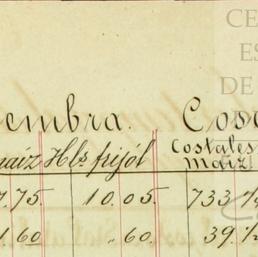 CE
ES
DE
embra. Cose
maiz Hls frijól Costales
maiz!
7.75 10.05. 733
1.60 „ 60. 39.½